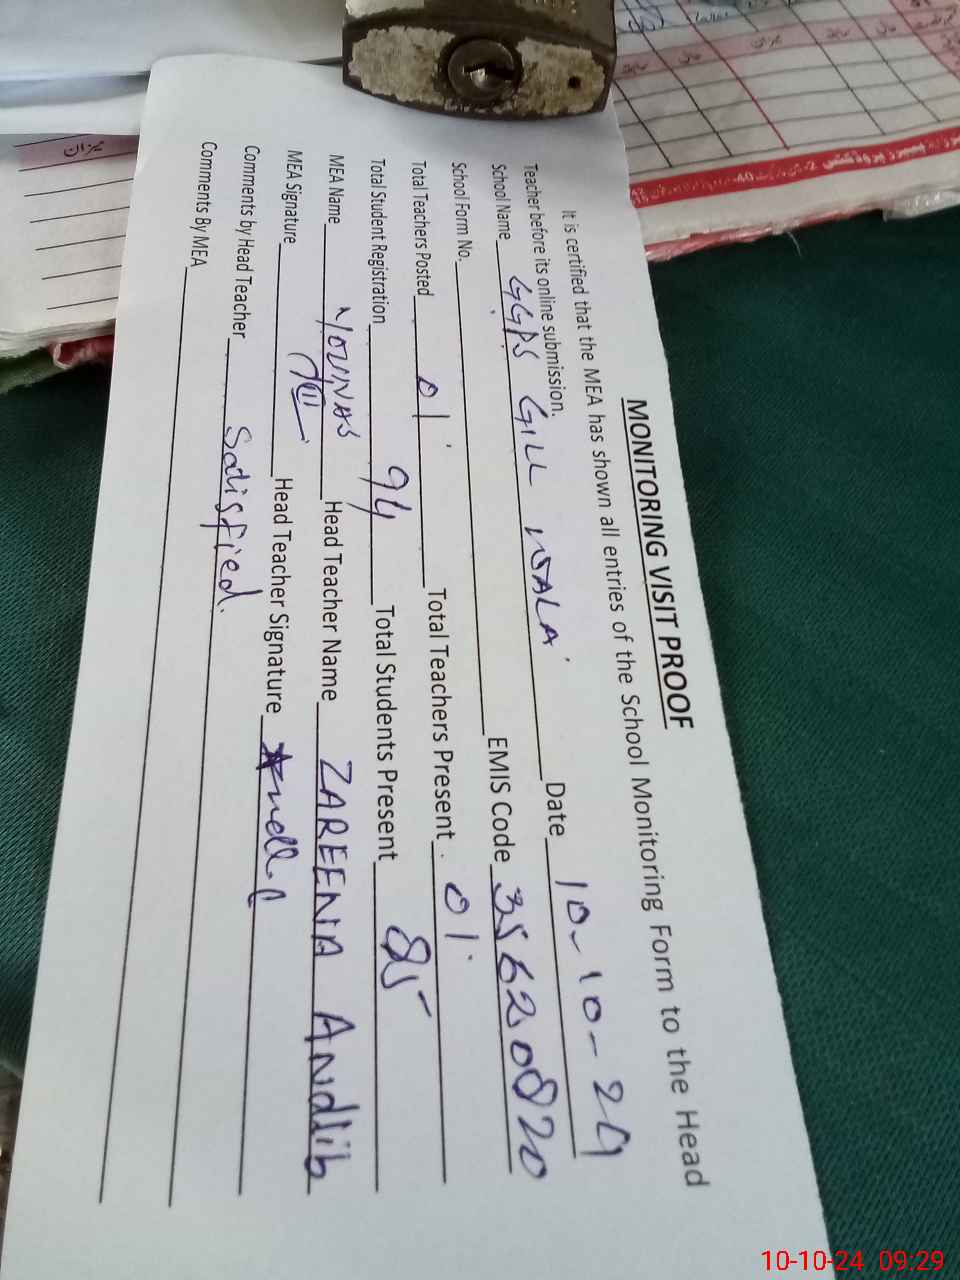 MONITORING VISIT PROOF
It is certified that the MEA has shown all entries of the School Monitoring Form to the Head
Teacher before its online submission.
School Name GGPS GILL WALA Date 10-10-24
School Form No. EMIS Code 35620820
Total Teachers Posted 01 Total Teachers Present 01
Total Student Registration 94 Total Students Present 85
MEA Name YOUNAS Head Teacher Name ZAREENA Andlib
MEA Signature Head Teacher Signature
Comments by Head Teacher Satisfied.
Comments By MEA
میزان
10-10-24 09:29